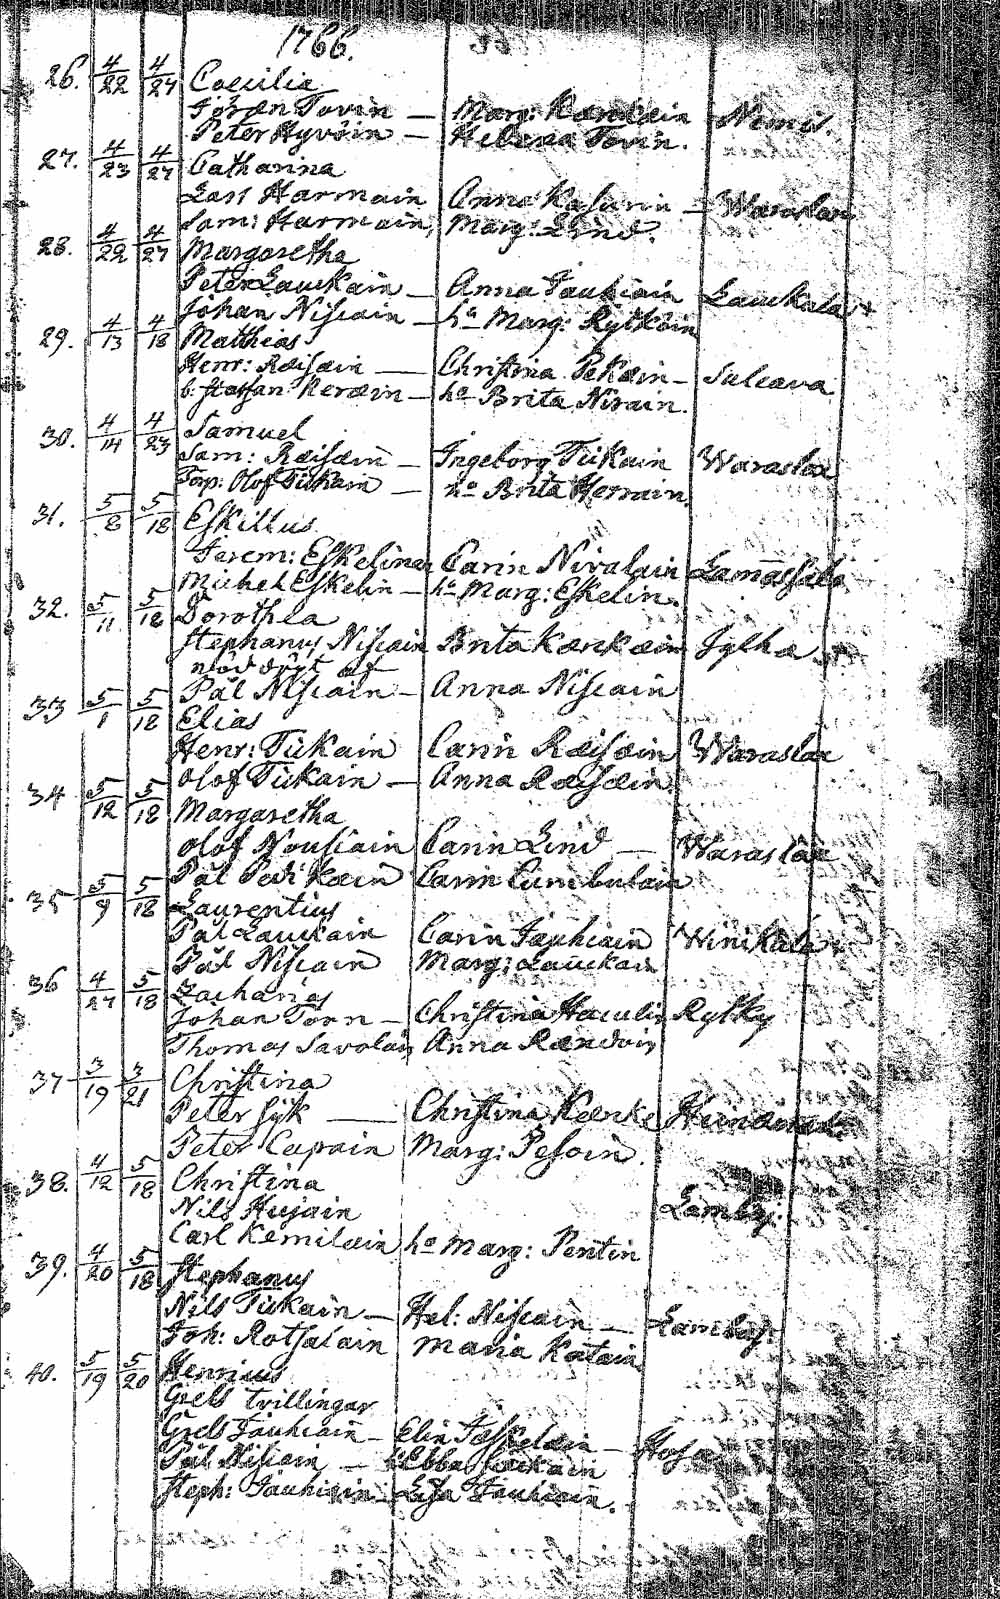 1766.
26. 4/22 4/27 Caecilia
Jöran Tovin — Marg: Karelain Nimis.
Peter Hyvöin — Helena Tovin.
27. 4/23 4/27 Catharina
Lars Harmain Anna Kasurin — Waraslax
Sam: Harmain, Marg: Lind.
28. 4/22 4/27 Margaretha
Peter Lauckain — Anna Jauhiain Lauckala
Johan Niscain — ha Marg: Rytköin
29. 4/13 4/18 Matthias
Henr: Ræisæin — Christina Pekæin — Suleava
b: Staffan Keræin — ha Brita Nirain.
30. 4/14 4/23 Samuel
Sam: Ræisæin — Ingeborg Tiikain Waraslax
Torp: Olof Tiikain — ha Brita Herrain
31. 5/8 5/18 Eskillus
Jerem: Eskelinen Carin Nivalain Lamassalo
Michel Eskelin — ha Marg: Eskelin.
32. 5/11 5/18 Dorothea
Stephanus Niscain Brita Kærkæin Jylha
nöddöpt af
Pål Niscain — Anna Niscain
33 5/1 5/18 Elias
Henr: Tiikain Carin Ræisæin Waraslax
Olof Tiikain — Anna Ræisæin
34 5/12 5/18 Margaretha
Olof Nousiain Carin Lind — Waraslax
Pål Pedikæin Carin Cumbulain
35 5/9 5/18 Laurentius
Pål Lauckain Carin Jauhiain Winikala
Pål Niscain Marg: Lauckain
36 4/27 5/18 Zacharias
Johan Torn — Christina Haculin Rytky
Thomas Savolain Anna Rændvin
37 3/19 3/21 Christina
Peter Sijk — Christina Kærke
Peter Cepain Marg: Pesoin.
38. 4/12 5/18 Christina
Nils Hujain Lamby:
Carl Kemilæin ha Marg: Pentin
39. 4/20 5/18 Stephanus
Nils Tiikain — Hel: Niscain — Lamby:
Joh: Rotsalain Maria Katain
40. 5/19 5/20 Henricus
Grels tvillingar
Grels Jauhiain — Elin Jæskelæin — Hosa
Pål Niscain — h Ebba Lackain
Steph: Jauhiain — Lisa Jauhiain.